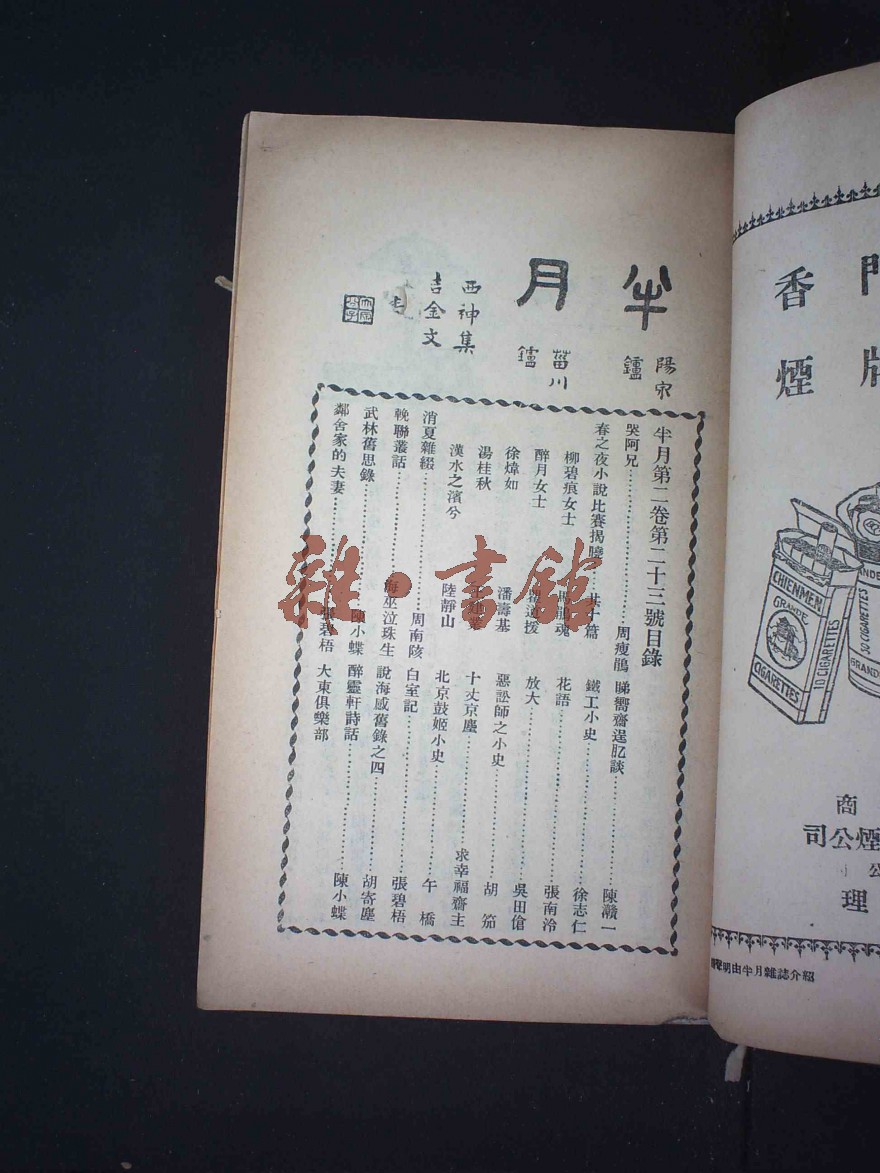 半月
陽宋
鑪
菑川
鑪
西神集
吉金文
半月第二卷第二十三號目錄
哭阿兄 周瘦鵑
春之夜小說比賽揭曉 共十篇
柳碧痕女士
醉月女士
徐煒如 潘壽基
湯桂秋
漢水之濱兮 陸靜山
消夏雜綴 周南陔
輓聯叢話 海巫泣珠生
武林舊思錄 陳小蝶
鄰舍家的夫妻 張碧梧
睇嚮齋逞肊談 陳灨一
鐵工小史 徐志仁
花語 張南泠
放大 吳田傖
惡訟師之小史 胡笳
十丈京塵 求幸福齋主
北京鼓姬小史 午橋
白室記 張碧梧
說海感舊錄之四 胡寄塵
醉靈軒詩話 陳小蝶
大東俱樂部
雜·書館
門
牌
香煙
CHIENMEN
GRANDE
CIGARETTES
10 CIGARETTES
商
煙公司
公
理
聲明由半月雜誌介紹